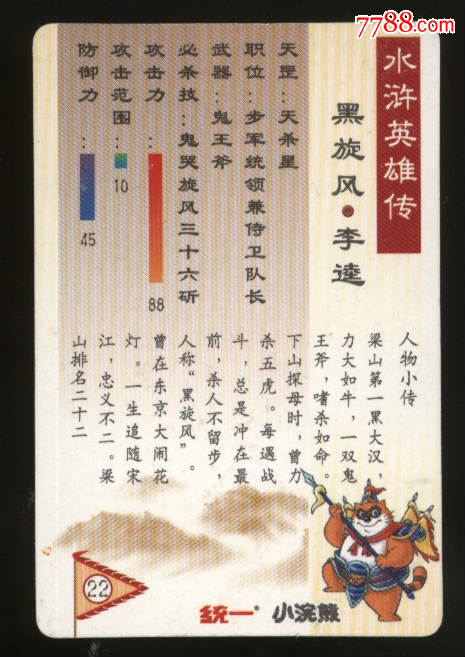 7788.com
水浒英雄传
黑旋风·李逵
天罡：天杀星
职位：步军统领兼侍卫队长
武器：鬼王斧
必杀技：鬼哭旋风三十六斫
攻击力：88
攻击范围：10
防御力：45
人物小传
梁山第一黑大汉，
力大如牛，一双鬼
王斧，嗜杀如命。
下山探母时，曾力
杀五虎。每遇战
斗，总是冲在最
前，杀人不留步，
人称“黑旋风”。
曾在东京大闹花
灯。一生追随宋
江，忠义不二。梁
山排名二十二
22
统一 小浣熊